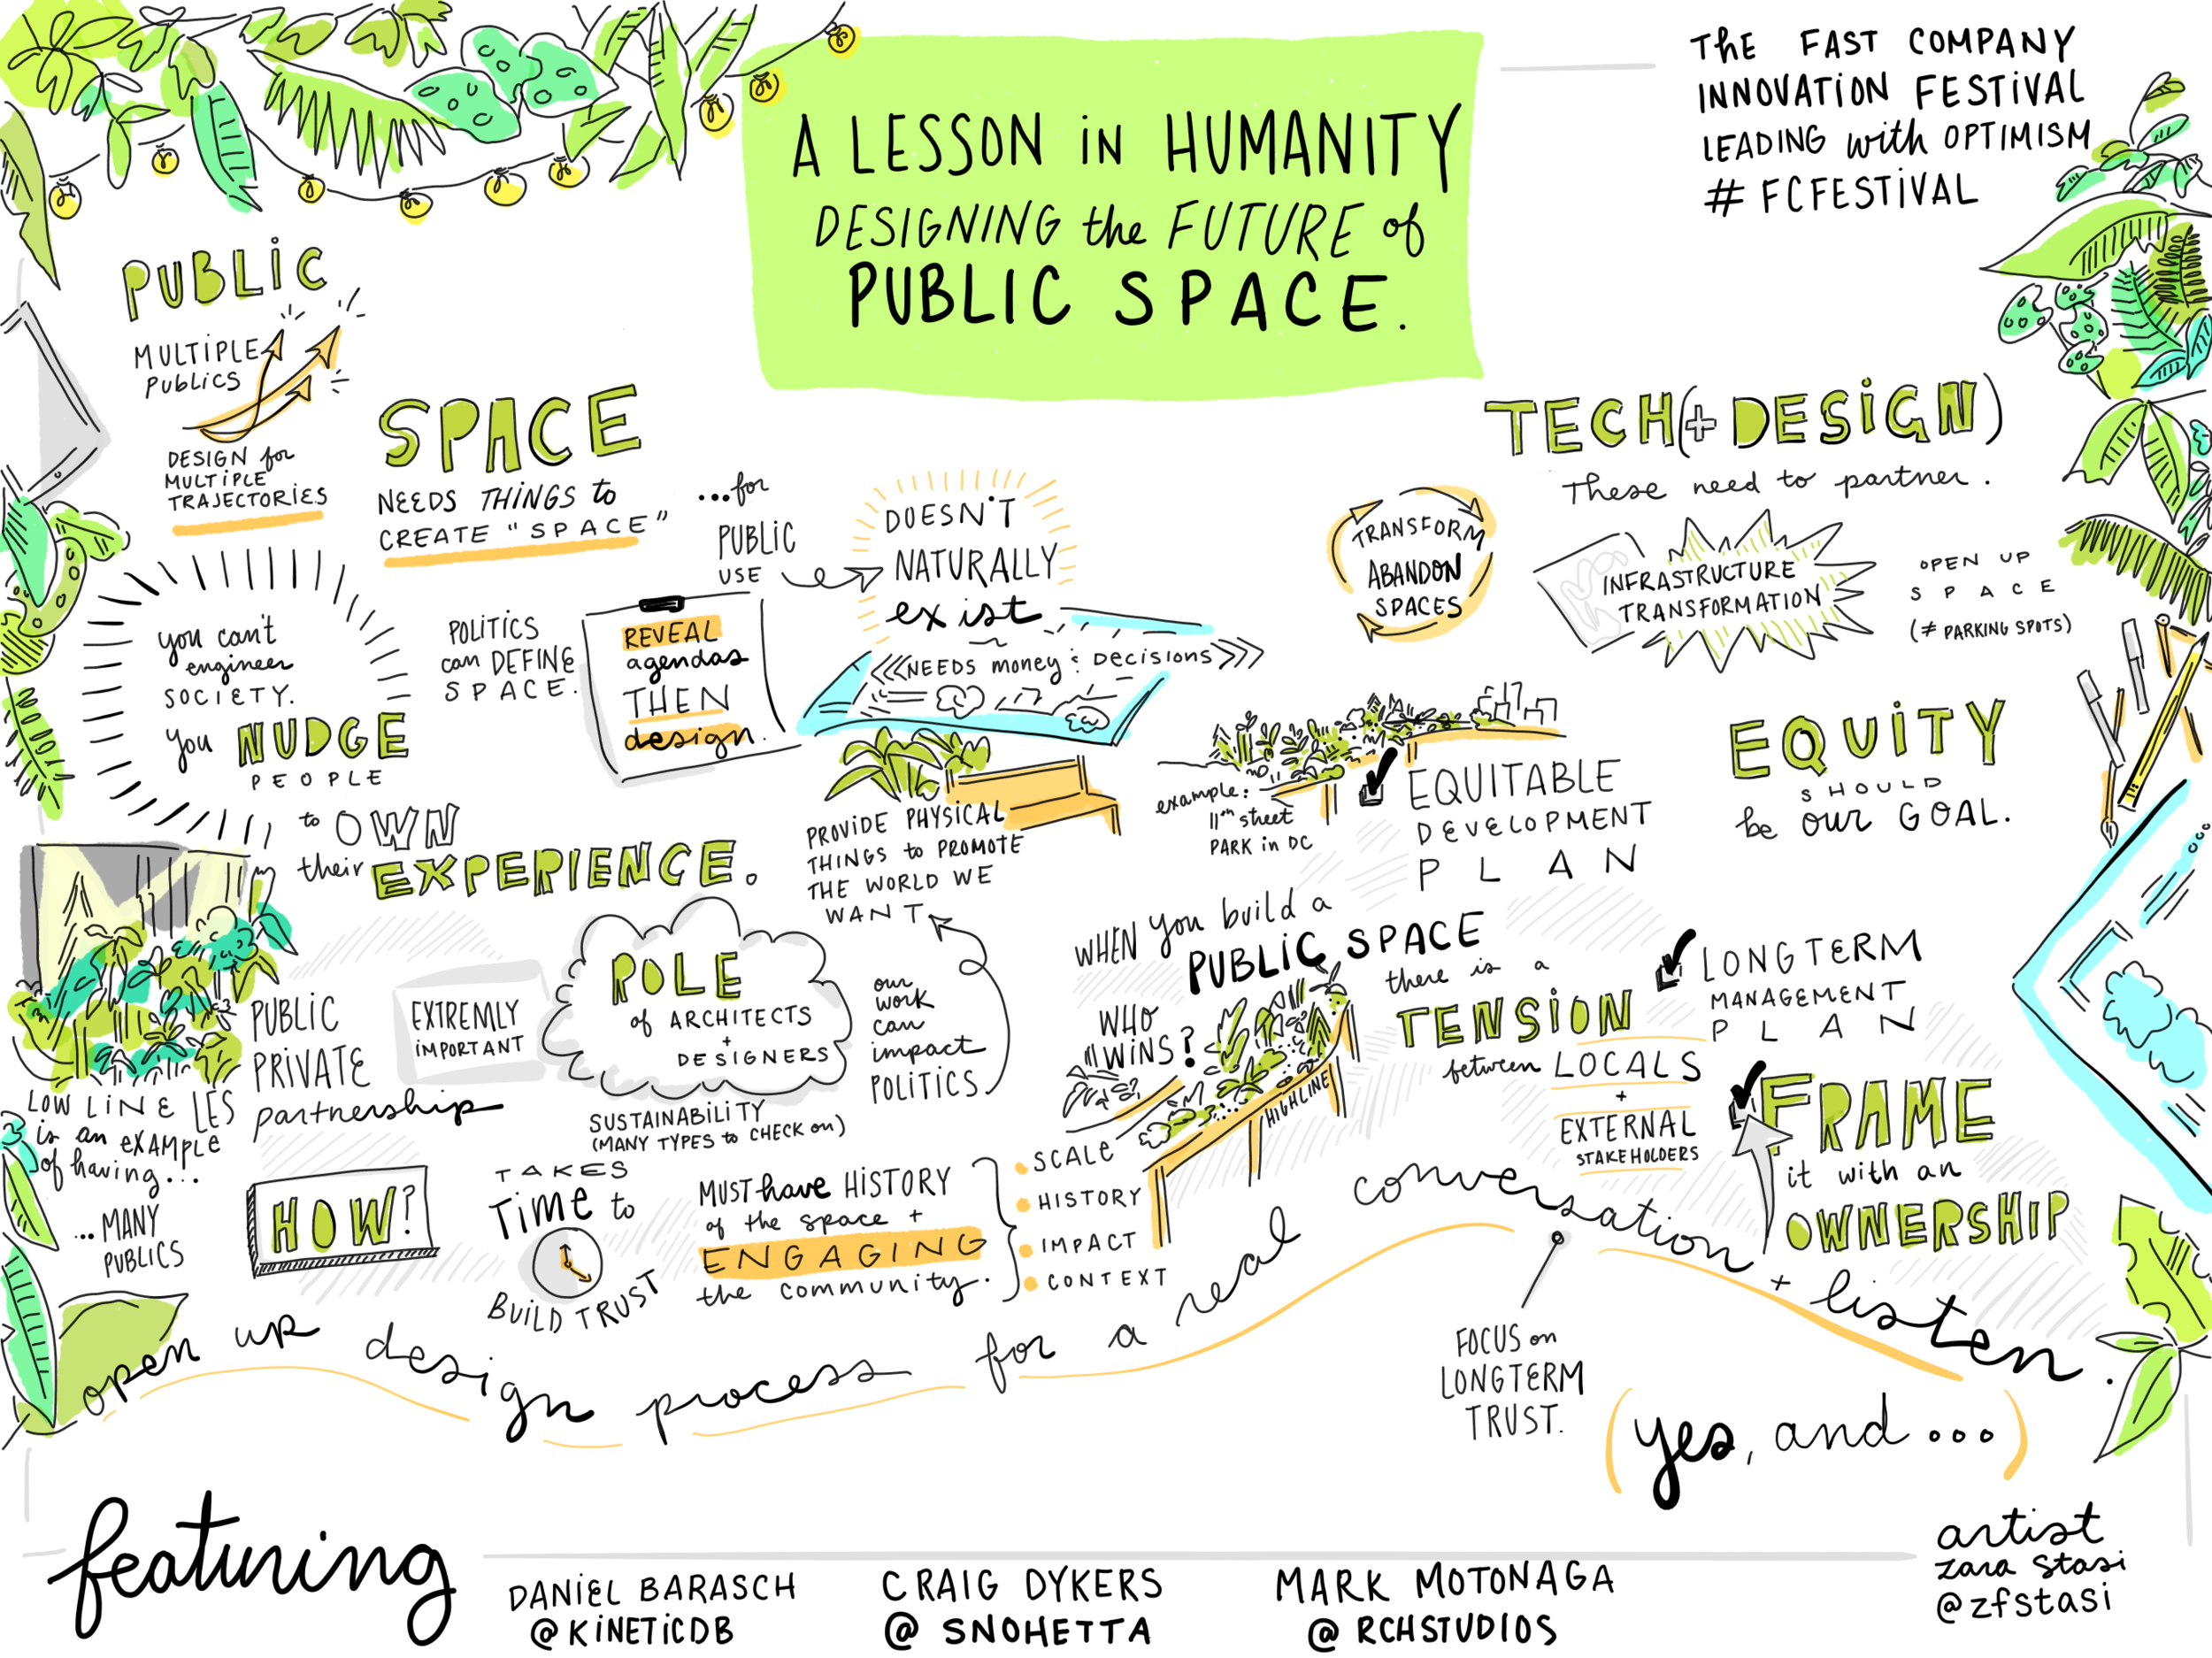 A LESSON iN HUMANITY
DESIGNING the FUTURE of
PUBLIC SPACE.
THE FAST COMPANY
INNOVATiON FESTiVAL
LEADING with OPTIMISM
# FCFESTiVAL
PUBLiC
MULTiPLE
PUBLiCS
DESIGN for
MULTIPLE
TRAJECTORiES
SPACE
NEEDS THiNGS to
CREATE "SPACE"
...for
PUBLiC
USE
DOESN'T
NATURALLY
exist
<<<NEEDS money & DECiSiONS>>>
you can't
engineer
SOCiETY.
you NUDGE
PEOPLE
to OWN
their EXPERIENCE.
POLiTiCS
can DEFINE
SPACE.
REVEAL
agendas
THEN
design.
PROViDE PHYSiCAL
THINGS to PROMOTE
THE WORLD WE
WANT
our
work
can
impact
POLiTiCS
TRANSFORM
ABANDON
SPACES
TECH(+DESiGN)
These need to partner.
INFRASTRUCTURE
TRANSFORMATION
OPEN UP
SPACE
(≠ PARKING SPOTS)
EQUiTY
SHOULD
be our GOAL.
example:
11th street
PARK in DC
EQUITABLE
DEVELOPMENT
PLAN
WHEN you build a
PUBLIC SPACE
there is a
TENSiON
between LOCALS
+
EXTERNAL
STAKEHOLDERS
WHO
WiNS?
HIGHLINE
LONGTERM
MANAGEMENT
PLAN
FRAME
it with an
OWNERSHIP
LOW LiNE LES
is an EXAMPLE
of having...
...MANY
PUBLiCS
PUBLiC
PRiVATE
partnership
EXTREMLY
iMPORTANT
ROLE
of ARCHiTECTS
+
DESIGNERS
SUSTAINABiLiTY
(MANY TYPES to CHECK on)
HOW?
TAKES
Time to
BUiLD TRUST
MUST have HISTORY
of the space +
ENGAGING
the community.
SCALE
HISTORY
IMPACT
CONTEXT
open up design process for a real conversation + listen.
FOCUS on
LONGTERM
TRUST.
(yes, and...)
featuring
DANiEL BARASCH
@KiNETiCDB
CRAIG DYKERS
@ SNOHETTA
MARK MOTONAGA
@ RCHSTUDIOS
artist
zara stasi
@zfstasi